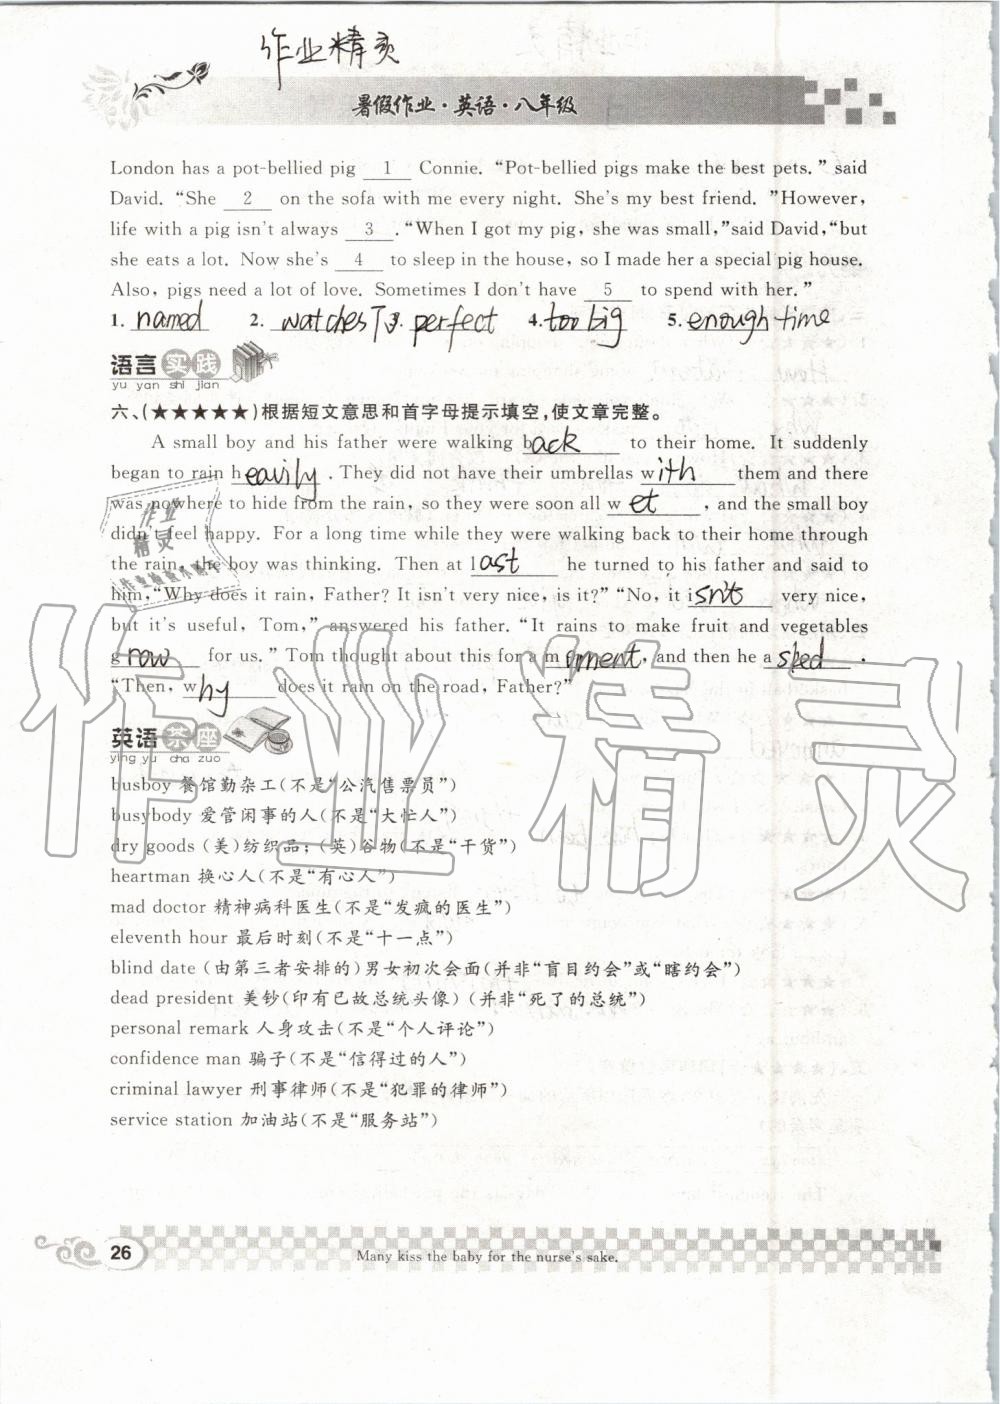 作业精灵
暑假作业·英语·八年级
London has a pot-bellied pig 1 Connie. “Pot-bellied pigs make the best pets. ” said
David. “She 2 on the sofa with me every night. She's my best friend. ”However,
life with a pig isn't always 3 .“When I got my pig, she was small,”said David,“but
she eats a lot. Now she's 4 to sleep in the house, so I made her a special pig house.
Also, pigs need a lot of love. Sometimes I don't have 5 to spend with her. ”
1. named 2. watches TV 3. perfect 4. too big 5. enough time
语言实践
yu yan shi jian
六、(★★★★★)根据短文意思和首字母提示填空,使文章完整。
A small boy and his father were walking back to their home. It suddenly
began to rain heavily . They did not have their umbrellas with them and there
was nowhere to hide from the rain, so they were soon all wet , and the small boy
didn't feel happy. For a long time while they were walking back to their home through
the rain, the boy was thinking. Then at last he turned to his father and said to
him,“Why does it rain, Father? It isn't very nice, is it?” “No, it isn't very nice,
but it's useful, Tom,” answered his father. “It rains to make fruit and vegetables
grow for us. ” Tom thought about this for a moment, and then he asked .
“Then, why does it rain on the road, Father?”
英语茶座
ying yu cha zuo
busboy 餐馆勤杂工(不是“公汽售票员”)
busybody 爱管闲事的人(不是“大忙人”)
dry goods (美)纺织品;(英)谷物(不是“干货”)
heartman 换心人(不是“有心人”)
mad doctor 精神病科医生(不是“发疯的医生”)
eleventh hour 最后时刻(不是“十一点”)
blind date (由第三者安排的)男女初次会面(并非“盲目约会”或“瞎约会”)
dead president 美钞(印有已故总统头像) (并非“死了的总统”)
personal remark 人身攻击(不是“个人评论”)
confidence man 骗子(不是“信得过的人”)
criminal lawyer 刑事律师(不是“犯罪的律师”)
service station 加油站(不是“服务站”)
26
Many kiss the baby for the nurse's sake.
作业精灵